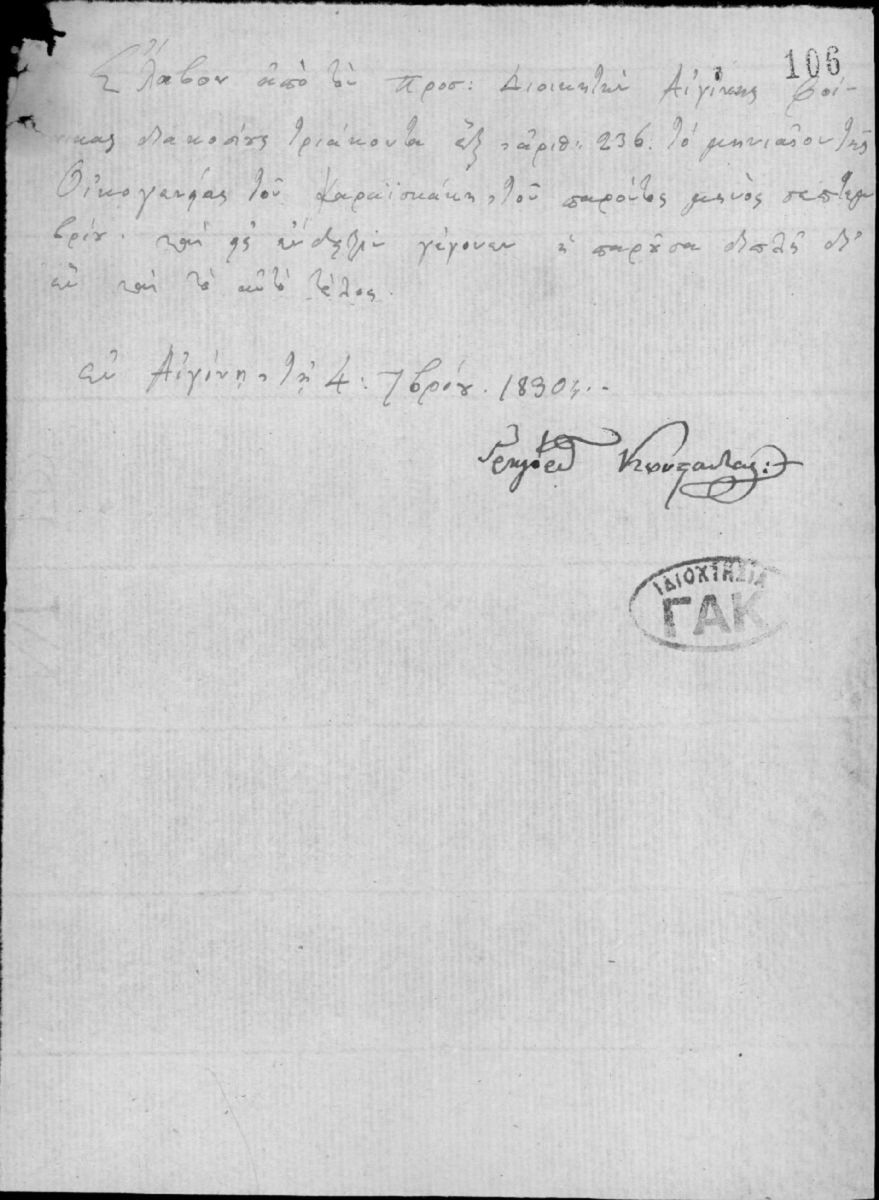 106
Ἔλαβον ἀπὸ τὸν προσ: Διοικητὴν Αἰγίνης φοί-
νικας διακοσίους τριάκοντα ἓξ ἀριθ: 236: τὸ μηνιαῖον τῆς
Οἰκογενείας τοῦ Καραϊσκάκη, τοῦ παρόντος μηνὸς σεπτεμ
βρίου. καὶ εἰς ἔνδειξιν γέγονεν ἡ παροῦσα διπλῆ δι'
ἓν καὶ τὸ αὐτὸ τέλος.
ἐν Αἰγίνῃ, τῇ 4: 7βρίου. 1830:.
ΙΔΙΟΧΤΗΣΙΑ
ΓΑΚ